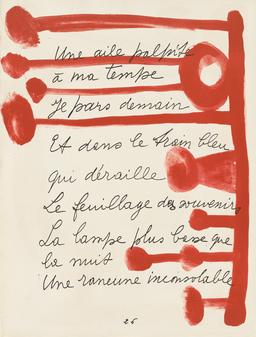 Une aile palpite
à ma tempe
Je pars demain
Et dans le train bleu
qui déraille
Le feuillage des souvenirs
La lampe plus basse que
la nuit
Une rancune inconsolable
26